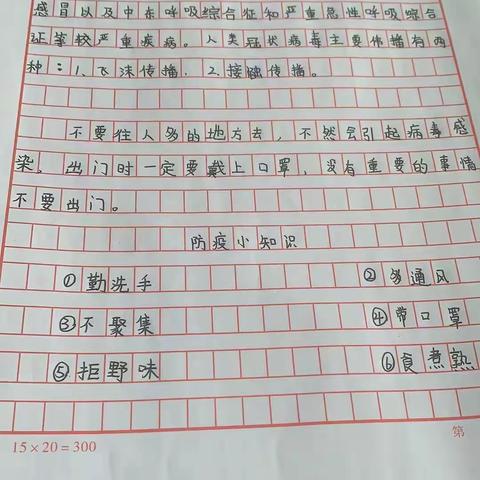 感冒以及中东呼吸综合征和严重急性呼吸综合
征等较严重疾病。人类冠状病毒主要传播有两
种：1、飞沫传播，2、接触传播。
不要往人多的地方去，不然会引起病毒感
染，出门时一定要戴上口罩，没有重要的事情
不要出门。
防疫小知识
①勤洗手 ②多通风
③不聚集 ④带口罩
⑤拒野味 ⑥食煮熟
15×20=300 第